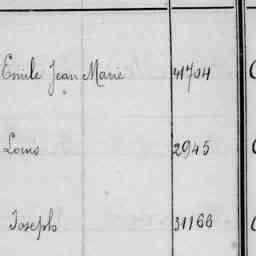 Emile Jean Marie 41704
Louis 2945
Joseph 31166